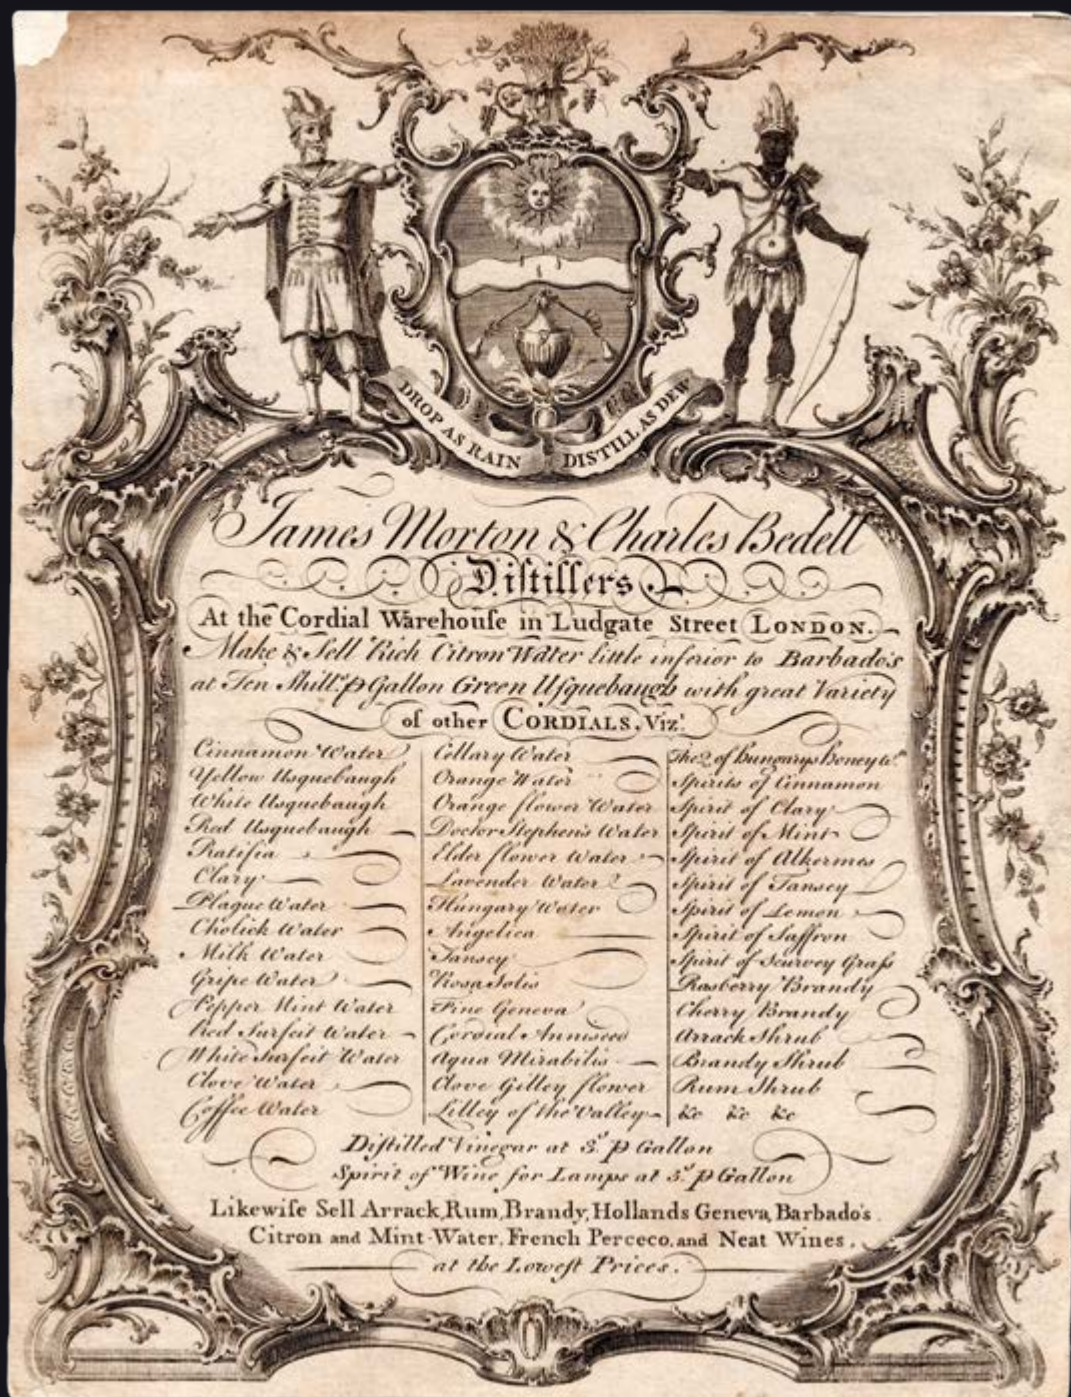 DROP AS RAIN DISTILL AS DEW
James Morton & Charles Bedell
Diſtillers
At the Cordial Warehouſe in Ludgate Street LONDON.
Make & Sell Rich Citron Water little inferior to Barbado's
at Ten Shill.ˢ ⅌ Gallon Green Uſquebaugh with great Variety
of other CORDIALS, Viz.ᵗ
Cinnamon Water
Yellow Usquebaugh
White Usquebaugh
Red Usquebaugh
Ratifia
Clary
Plague Water
Cholick Water
Milk Water
Gripe Water
Pepper Mint Water
Red Surfeit Water
White Surfeit Water
Clove Water
Coffee Water
Cellary Water
Orange Water
Orange flower Water
Doctor Stephen's Water
Elder flower Water
Lavender Water
Hungary Water
Angelica
Tansey
Rosa Solis
Fine Geneva
Cordial Anniseed
Aqua Mirabilis
Clove Gilley flower
Lilley of the Valley
The Q of Hungarys Honey Wʳ
Spirits of Cinnamon
Spirit of Clary
Spirit of Mint
Spirit of Alkermes
Spirit of Tansey
Spirit of Lemon
Spirit of Saffron
Spirit of Scurvey Graſs
Rasberry Brandy
Cherry Brandy
Arrack Shrub
Brandy Shrub
Rum Shrub
&c &c &c
Diſtilled Vinegar at 3.ˢ ⅌ Gallon
Spirit of Wine for Lamps at 5.ˢ ⅌ Gallon
Likewiſe Sell Arrack, Rum, Brandy, Hollands Geneva, Barbado's
Citron and Mint-Water, French Perceco, and Neat Wines,
at the Loweſt Prices.